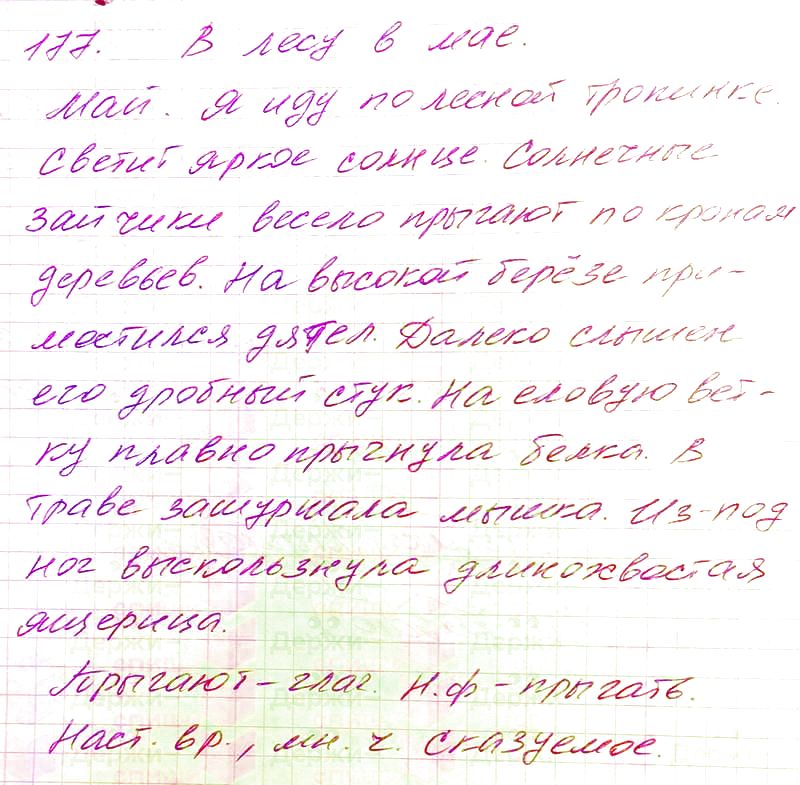 177. В лесу в мае.
Май. Я иду по лесной тропинке.
Светит яркое солнце. Солнечные
зайчики весело прыгают по кронам
деревьев. На высокой берёзе при-
мостился дятел. Далеко слышен
его дробный стук. На еловую вет-
ку плавно прыгнула белка. В
траве зашуршала мышка. Из-под
ног выскользнула длинохвостая
ящерица.
Прыгают - глаг. Н.ф - прыгать.
Наст. вр., мн. ч. сказуемое.